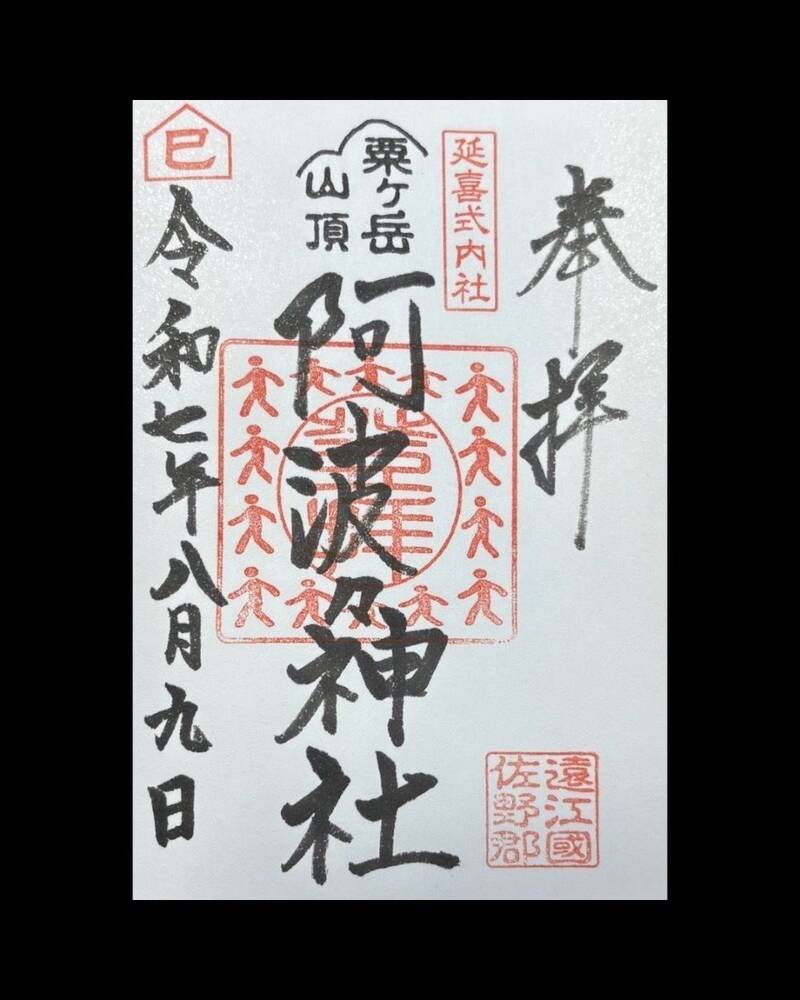 奉拝
延喜式内社
粟ヶ岳
山頂
阿波々神社
巳
令和七年八月九日
遠江國
佐野郡